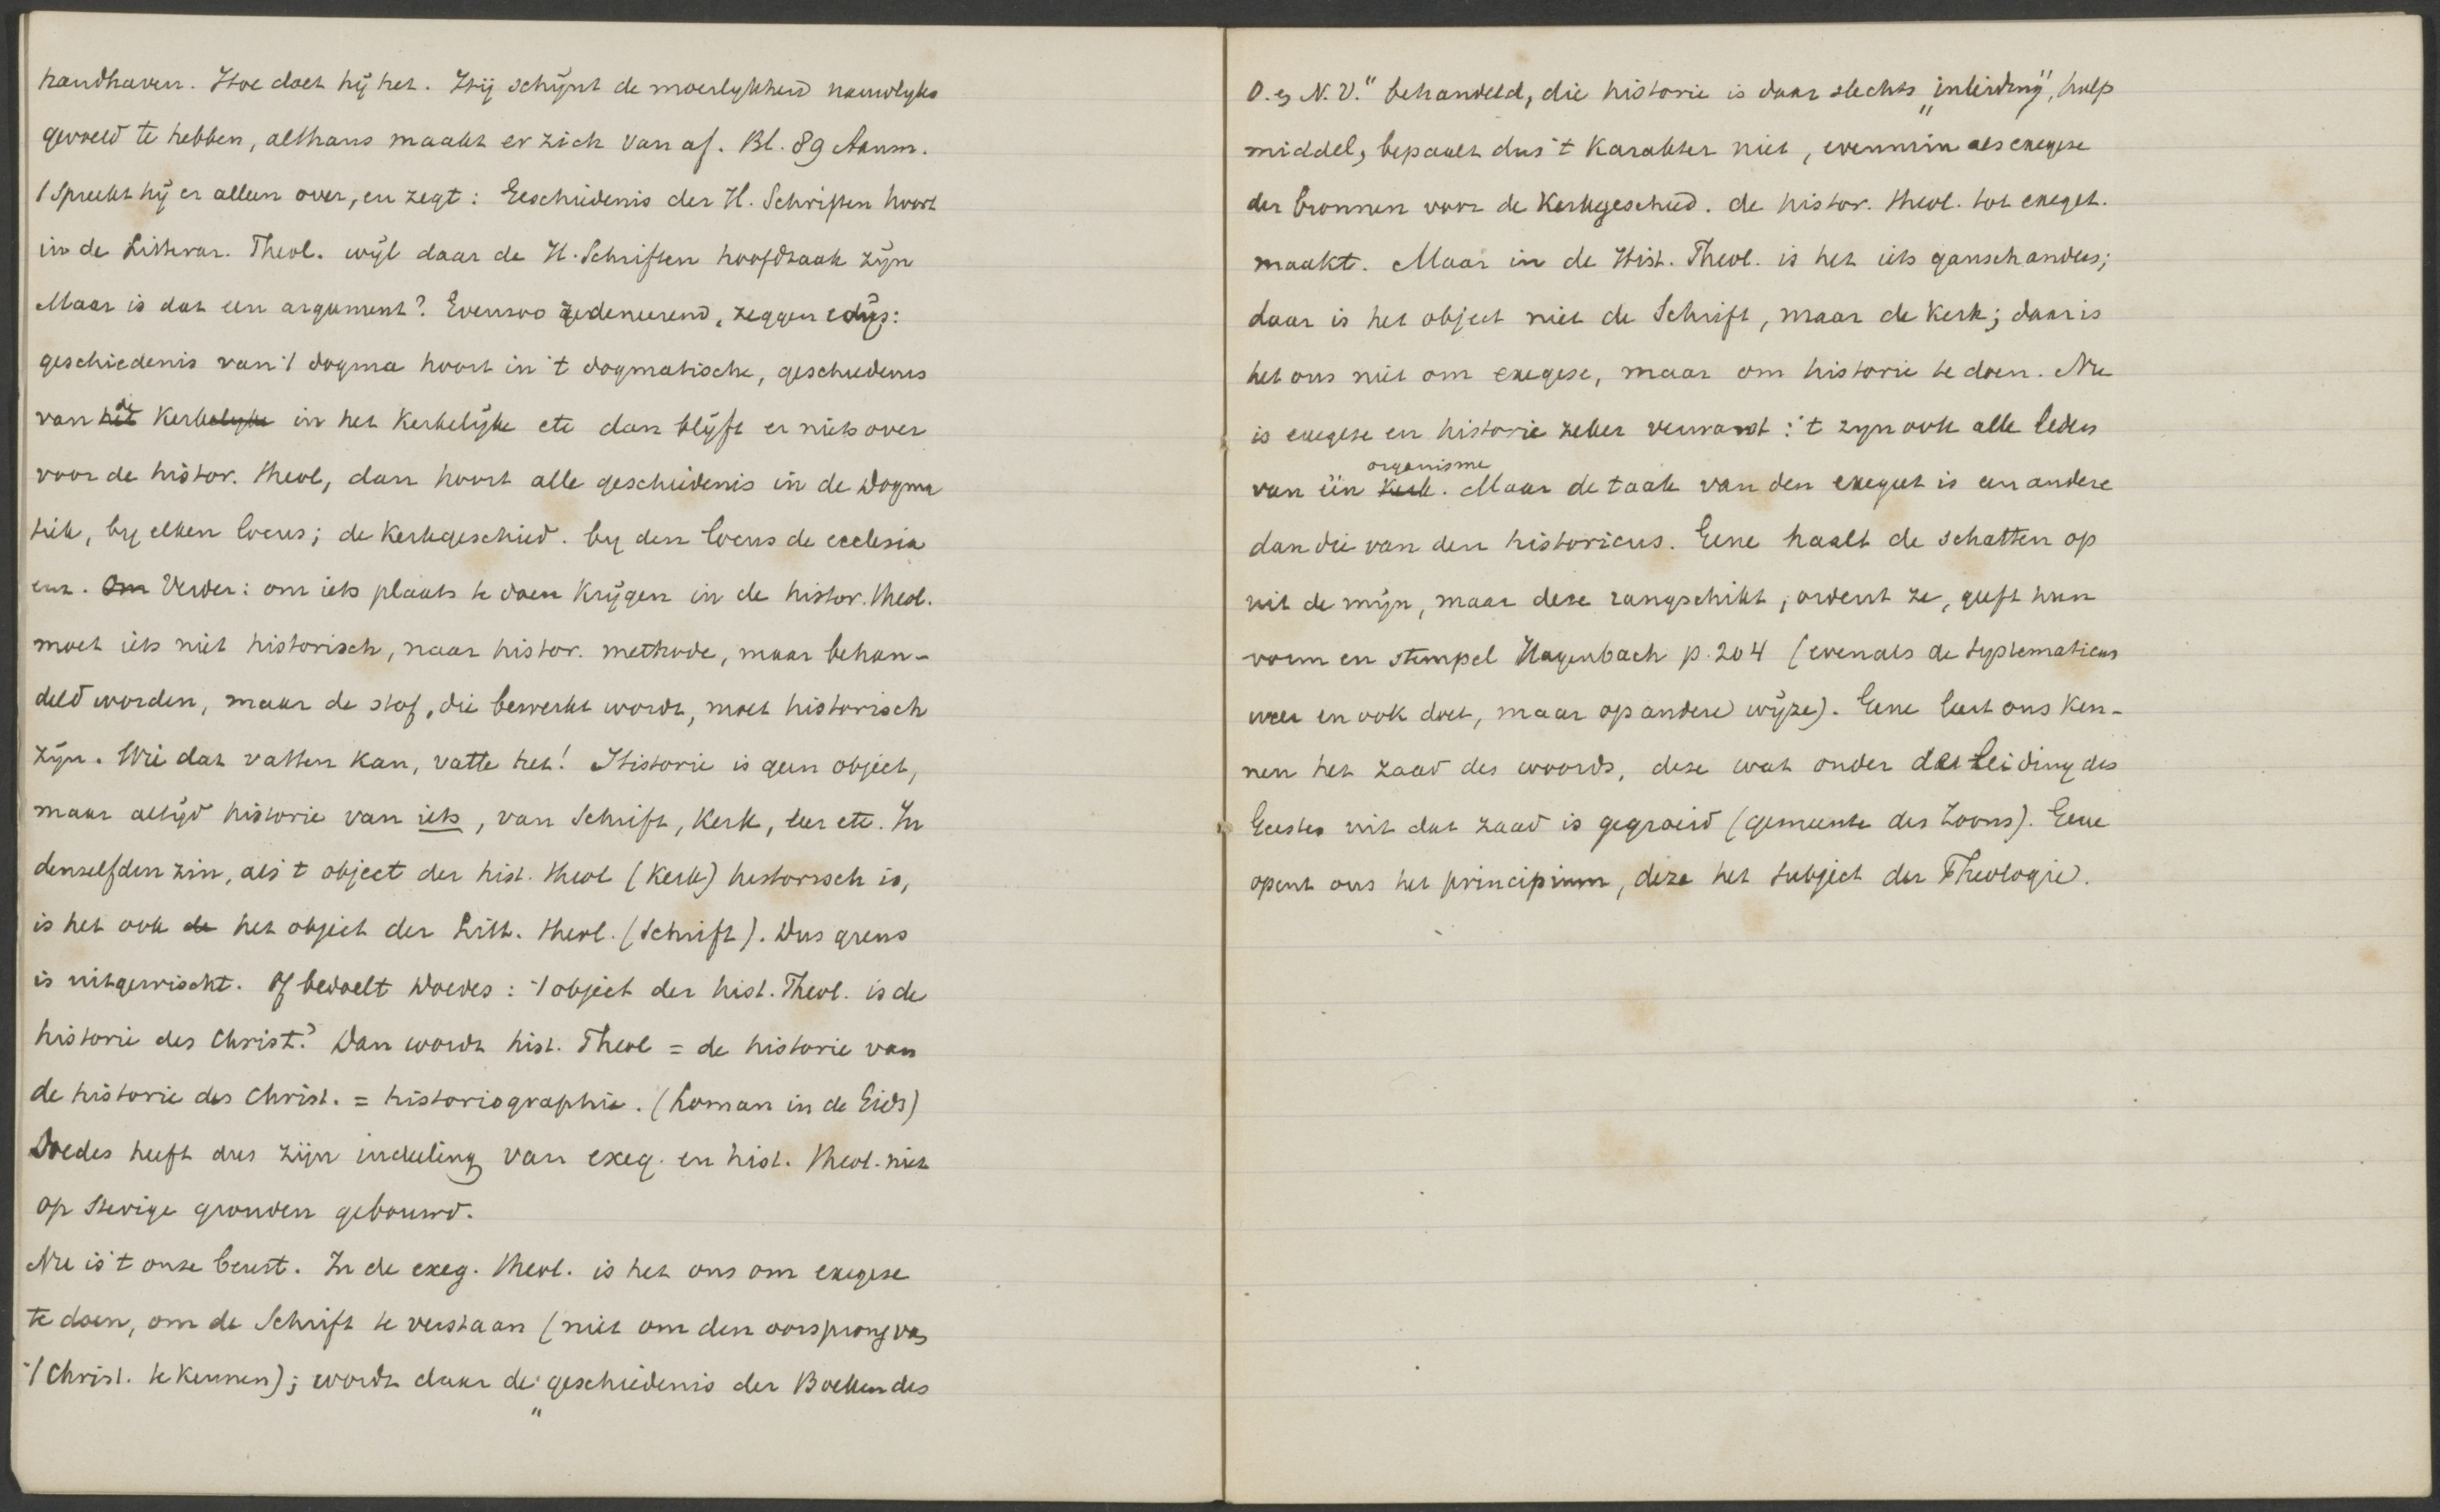 handhaven. Hoe doet hij het. Hij schijnt de moeilykheid nauwlyks
gevoeld te hebben, althans maakt er zich van af. Bl. 89 Anm.
1 spreekt hij er alleen over, en zegt: Geschiedenis der H. Schriften hoort
in de Litterar. Theol. wijl daar de H. Schriften hoofdzaak zijn
Maar is dat een argument? Evenzoo redeneerend, zeggen wij:
geschiedenis van 't dogma hoort in 't dogmatische, geschiedenis
van de Kerk in het Kerkelijke etc dan blijft er niets over
voor de histor. theol, dan hoort alle geschiedenis in de Dogma
tiek, by elken locus; de Kerkgeschied. by den locus de ecclesia
enz. Verder: om iets plaats te doen krijgen in de histor. theol.
moet iets niet historisch, naar histor. methode, maar behan-
deld worden, maar de stof, die bewerkt wordt, moet historisch
zijn. Wie dat vatten kan, vatte het! Historie is geen object,
maar altijd historie van iets, van Schrift, Kerk, leer etc. In
denzelfden zin, als 't object der hist. theol (Kerk) historisch is,
is het ook de het object der Litt. theol. (Schrift). Dus grens
is uitgewischt. Of bedoelt Doedes: 't object der hist. Theol. is de
historie des Christ.? Dan wordt hist. Theol = de historie van
de historie des Christ. = historiographie. (Loman in de Gids)
Doedes heeft dus zijn indeeling van exeg. en hist. theol. niet
op stevige gronden gebouwd.
Nu is 't onze beurt. In de exeg. theol. is het ons om exegese
te doen, om de Schrift te verstaan (niet om den oorsprong van
't Christ. te kennen); wordt daar de „geschiedenis der Boeken des
O. en N. V." behandeld, die historie is daar slechts „inleiding", hulp
middel, bepaalt dus 't karakter niet, evenmin als exegese
der bronnen voor de Kerkgeschied. de histor. theol. tot exeget.
maakt. Maar in de Hist. Theol. is het iets gansch anders;
daar is het object niet de Schrift, maar de Kerk; daar is
het ons niet om exegese, maar om historie te doen. Nu
is exegese en historie zeker verwant: 't zyn ook alle leden
van één organisme. Maar de taak van den exegeet is een andere
dan die van den historicus. Gene haalt de schatten op
uit de mijn, maar deze rangschikt, ordent ze, geeft hun
vorm en stempel Hagenbach p. 204 (evenals de systematicus
weer en ook doet, maar op andere wijze). Gene leert ons ken-
nen het zaad des woords, deze wat onder de leiding des
Geestes uit dat zaad is gegroeid (gemeente des Zoons). Gene
opent ons het principium, deze het subject der Theologie.